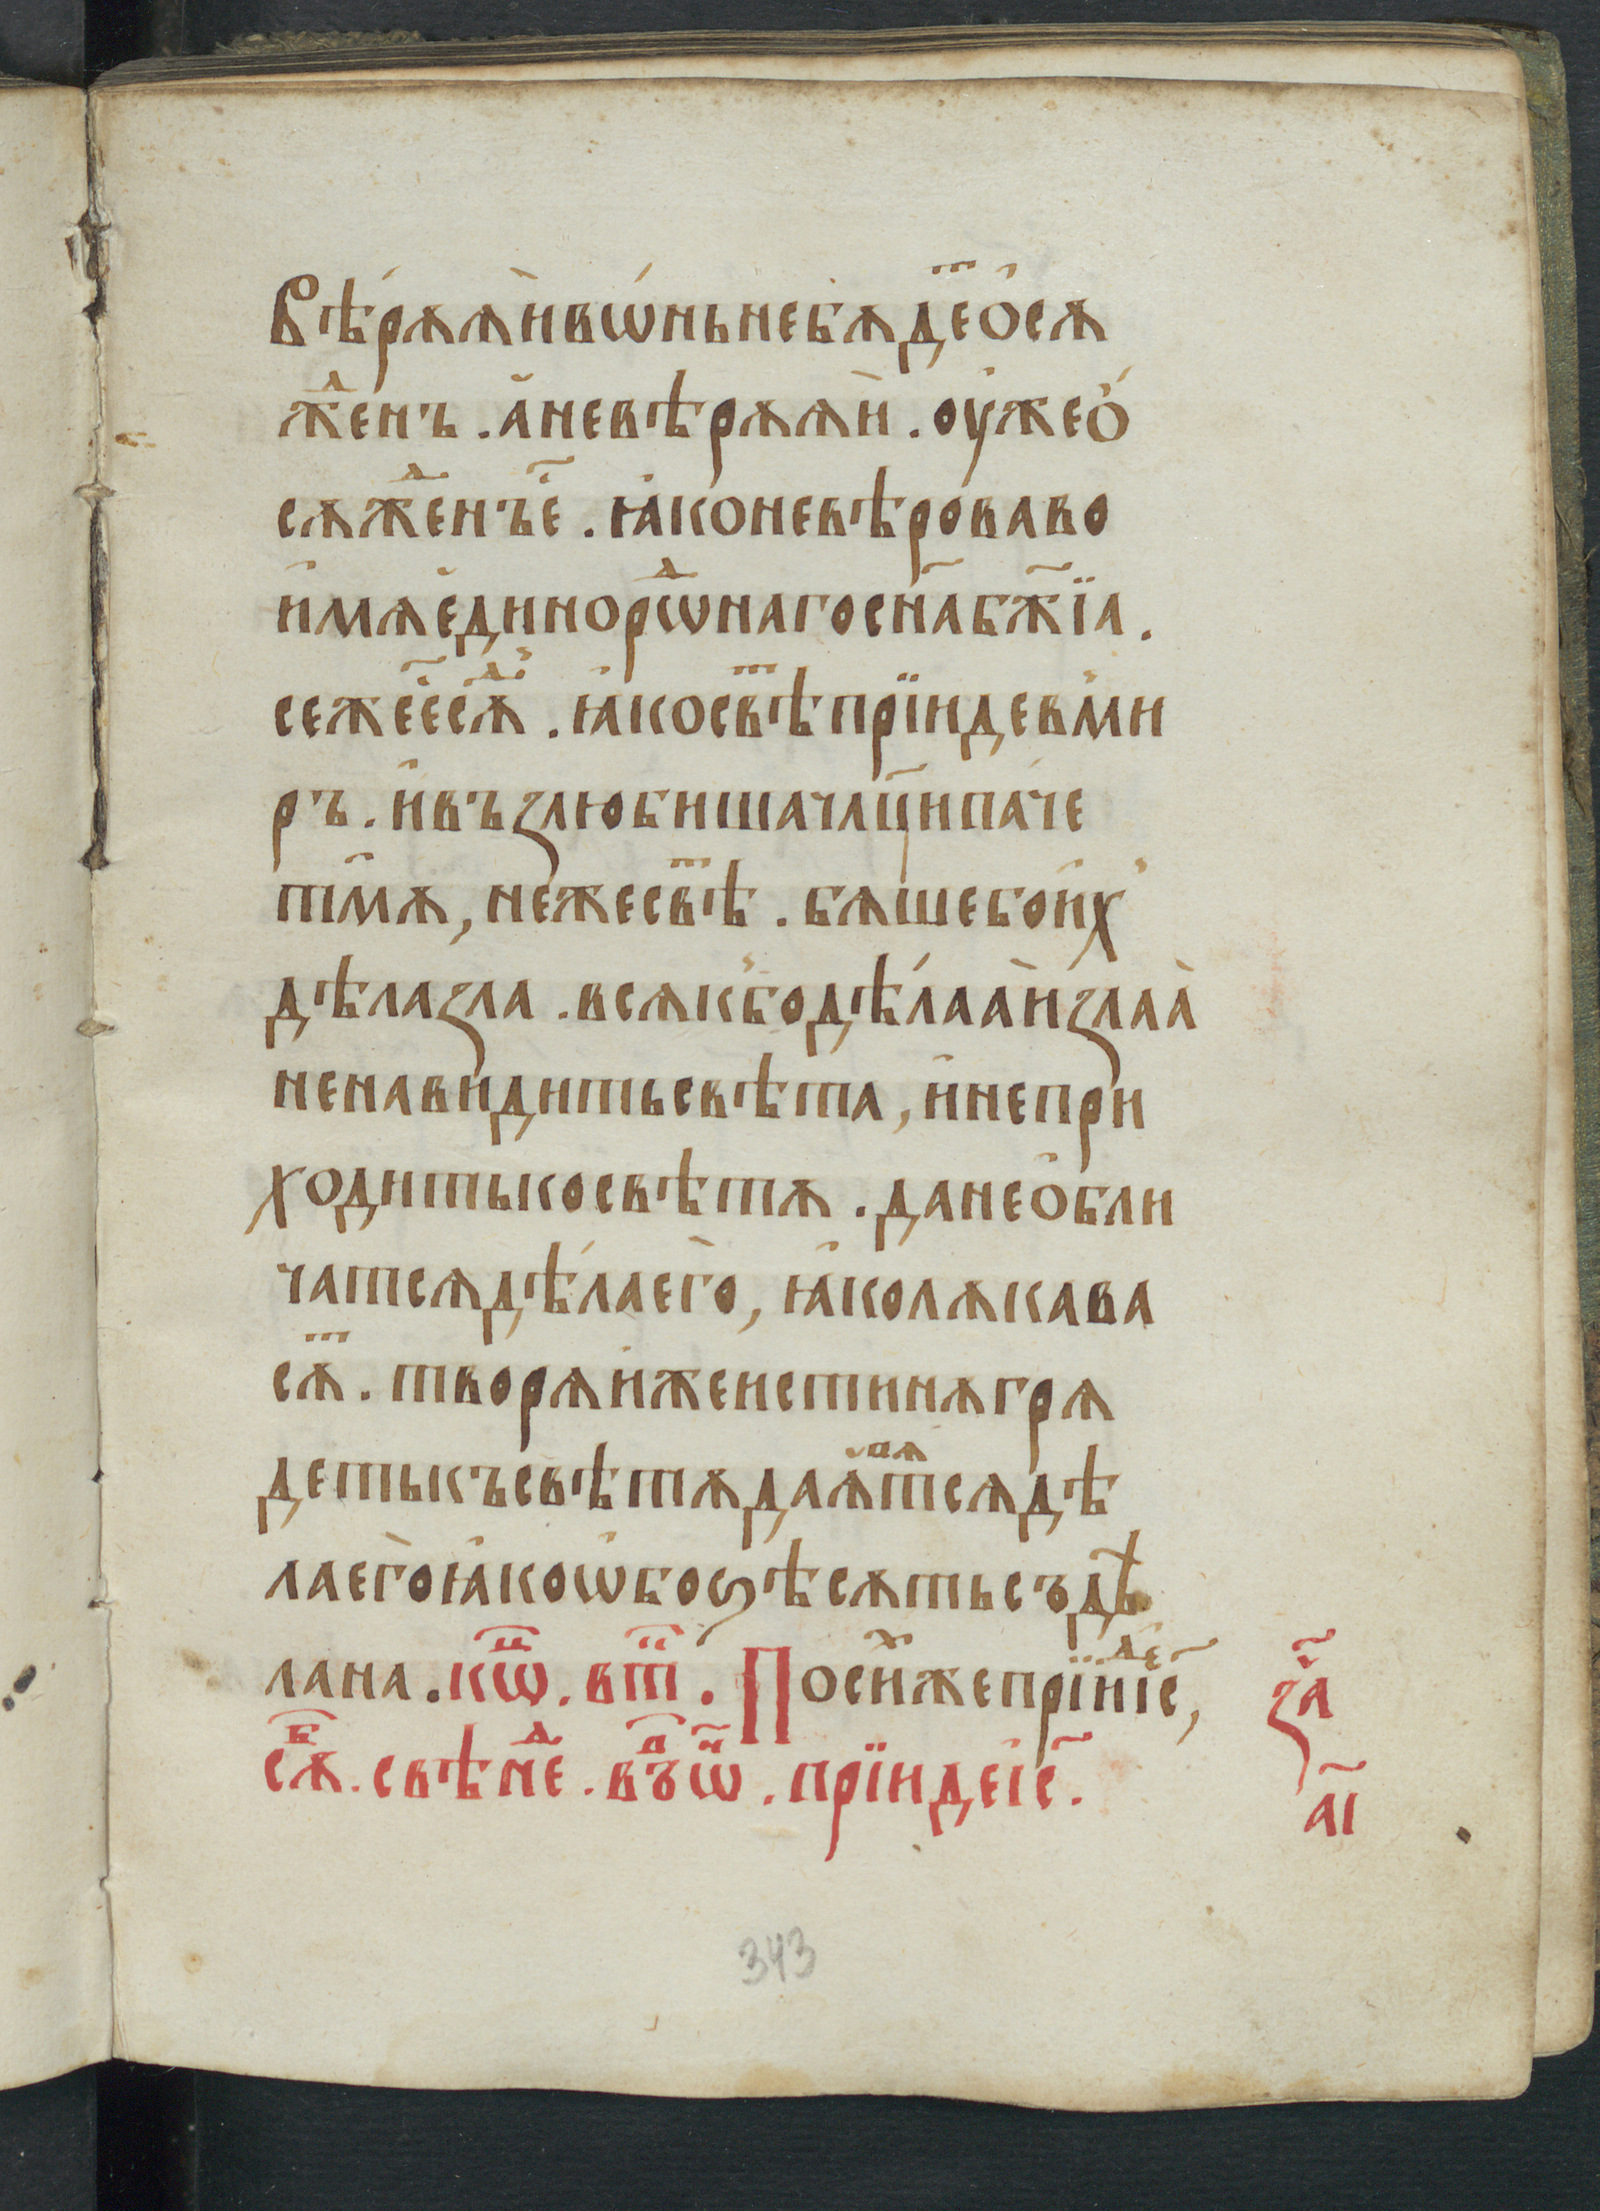 Вѣ́рꙋѧ҆йвѡ́ньнебꙋде́ⷮо҆сꙋ
жⷣе́нъ . а҆невѣрꙋѧй . оу҆жео҆
сꙋжⷣенъе҆҃ . ꙗ҆коневѣроваво
и҆мѧе҆динорѡⷣнагосн҃абж҃їа .
сежее҆҃сꙋⷣ . ꙗ҆косвⷮѣпрїидевми
ръ . и҆възлюбишачл҃ципаче
тмꙋ , нежесвⷮѣ . бѧшебои҆х
дѣлазла . всѧкбодѣ́лаа҆йзлаа҆
ненавидитьсвѣта , и҆непри
ходитькосвѣтꙋ . данео҆бли
чатсѧдѣ́лаего̀ , ꙗ҆колꙋкава
сꙋⷮ . творѧиженстинꙋгрѧ
детькъсвѣтꙋдаꙗⷡ҇ꙗтсѧдѣ
лаего̀ꙗ҆коѡ҆боѕѣсꙋтьсъдѣ
лана . кѡⷰ . вⷮ . Посиⷯжепрїиⷣеі҆с҃ ,
сꙋⷠ . свѣтⷧе . въѡⷩ . прїидеі҆с҃ .
за҃
аі҃
343